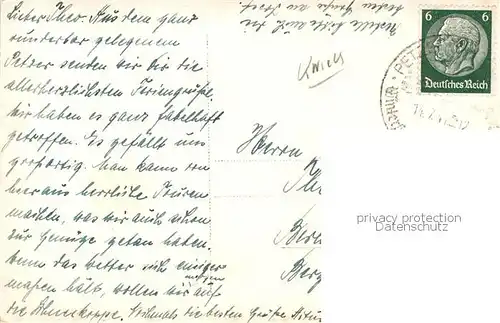 Lieber Theo. Aus dem ganz
wunderbar gelegenem
Petzer senden wir Dir die
allerherzlichsten Feriengrüße.
Wir haben es ganz fabelhaft
getroffen. Es gefällt uns
großartig. Man kann von
hier aus herrliche Touren
machen, was wir auch schon
zur Genüge getan haben.
Wenn das Wetter sich einiger
maßen hält, wollen wir morgen auf
die Schneekoppe. Nochmals die besten Grüße
Bestelle bitte auch
6 6
Deutsches Reich
Herrn
Berl
Berg
privacy protection
Datenschutz